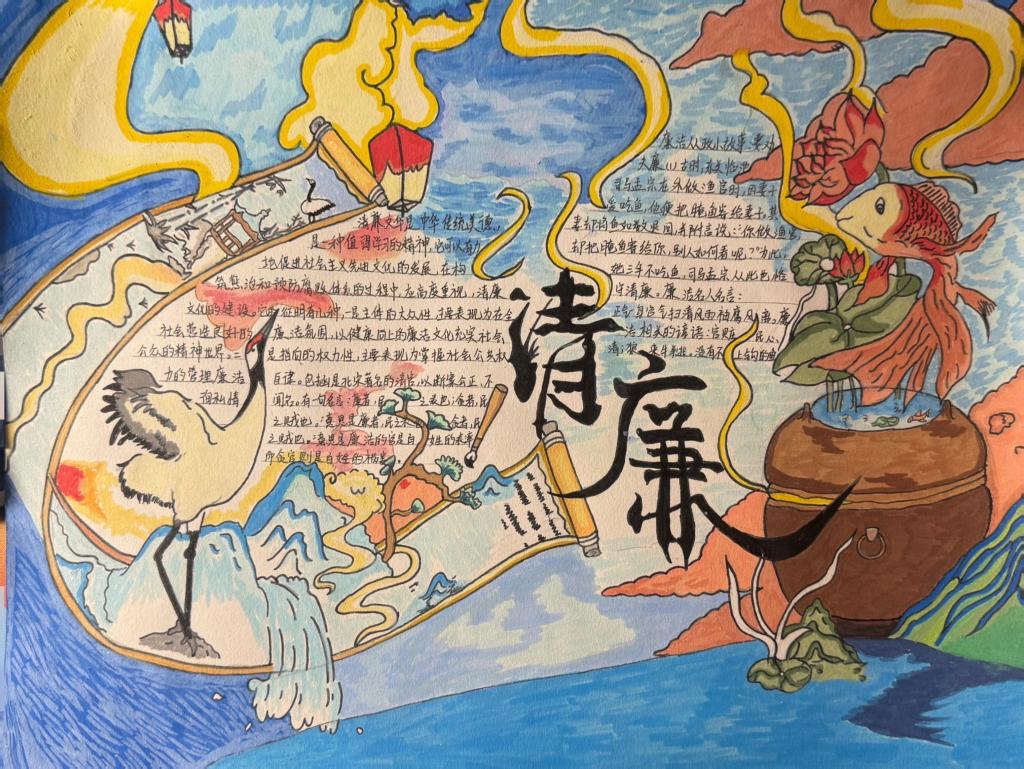 清廉文华是中华传统美德,
是一种值得学习的精神,它可以有力
地促进社会主义先进文化的发展,在构
筑惩治和预防腐败体系的过程中,应高度重视,清廉
文化的建设。它象征明有心神,一是主体的大众性,主要表现为在全
社会营造良好的 廉洁氛围,以健康向上的廉洁文化充实社会,
公众的精神世界;二 是指向的权力性,主要表现为掌握社会公共权
力的管理廉洁 自律。包拯是北宋著名的清官,以断案公正,不
徇私情 闻名。有一句名言:廉者,民之表也;贪者,民
之贼也。
之贼也。意思是廉洁的官是百姓的表率
而贪官则是百姓的祸害。
廉洁从政小故事:妻劝
夫廉(1)古时,
司马孟宗在外做渔官时,因妻子
爱吃鱼,他便把腌鱼寄给妻子,其
妻却将鱼如数退回,并附言说:“你做渔官,
却把腌鱼寄给你,别人如何看呢?”为此,
她三年不吃鱼,司马孟宗从此也恪
守清廉。廉洁名人名言:
正气
洁相关的谚语:官贴
清;狼
清廉